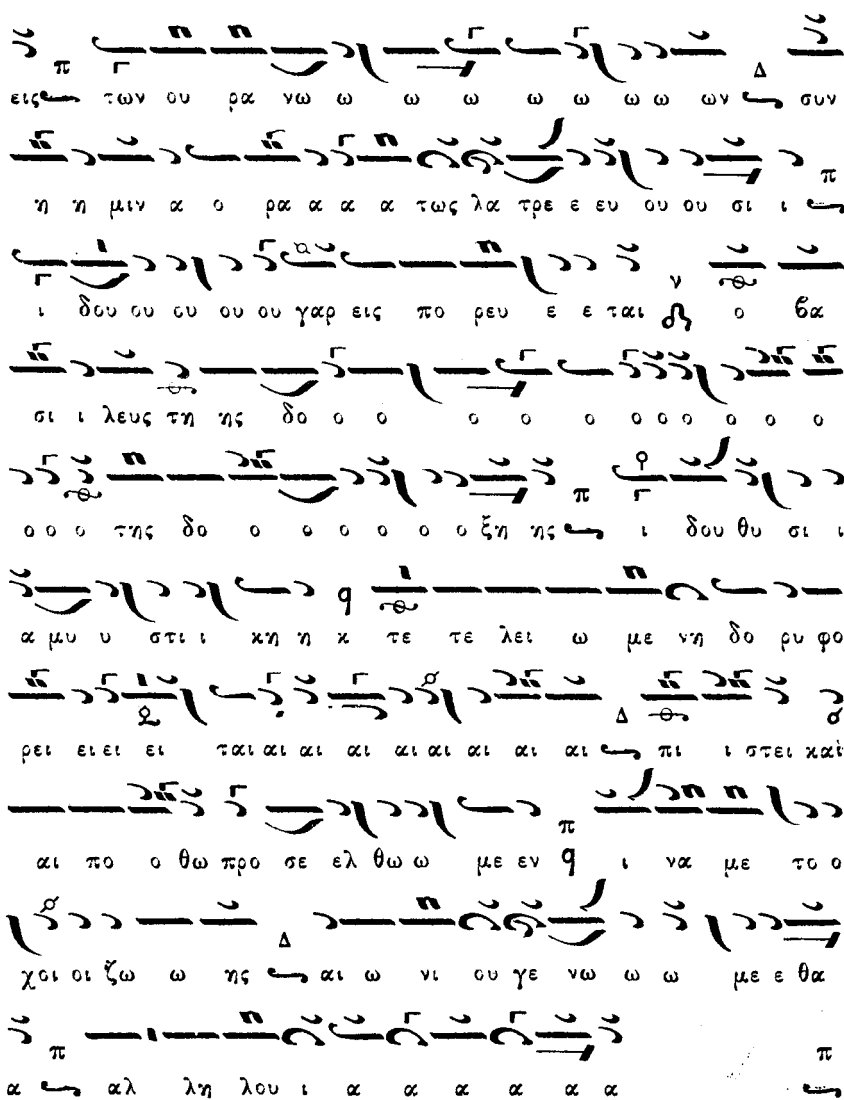 εις των ου ρα νω ω ω ω ω ω ω ω ω ων συν
η η μιν α ο ρα α α α τως λα τρε ε ευ ου ου σι ι
ι δου ου ου ου ου γαρ εις πο ρευ ε ε ται ο βα
σι ι λευς τη ης δο ο ο ο ο ο ο ο ο ο ο ο
ο ο ο της δο ο ο ο ο ο ο ξη ης ι δου θυ σι ι
α μυ υ στι ι κη η κ τε τε λει ω με νη δο ρυ φο
ρει ει ει ει ται αι αι αι αι αι αι αι αι πι ι στει και
αι πο ο θω προ σε ελ θω ω με εν ι να με το ο
χοι οι ζω ω ης αι ω νι ου γε νω ω ω με ε θα
α αλ λη λου ι α α α α α α